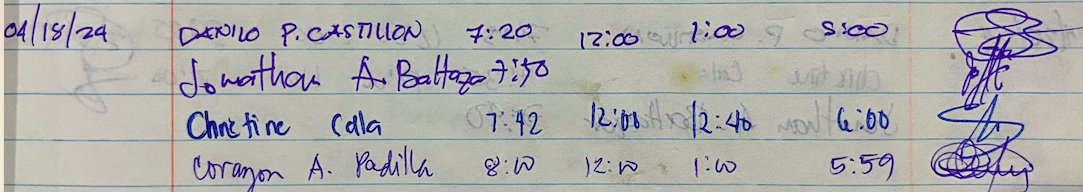 04/18/24 DANILO P. CASTILLON 7:20 12:00 1:00 5:00
Jonathan A. Baltaza 7:50
Christine Calla 7:42 12:00 12:40 6:00
Corazon A. Padilla 8:00 12:00 1:00 5:59